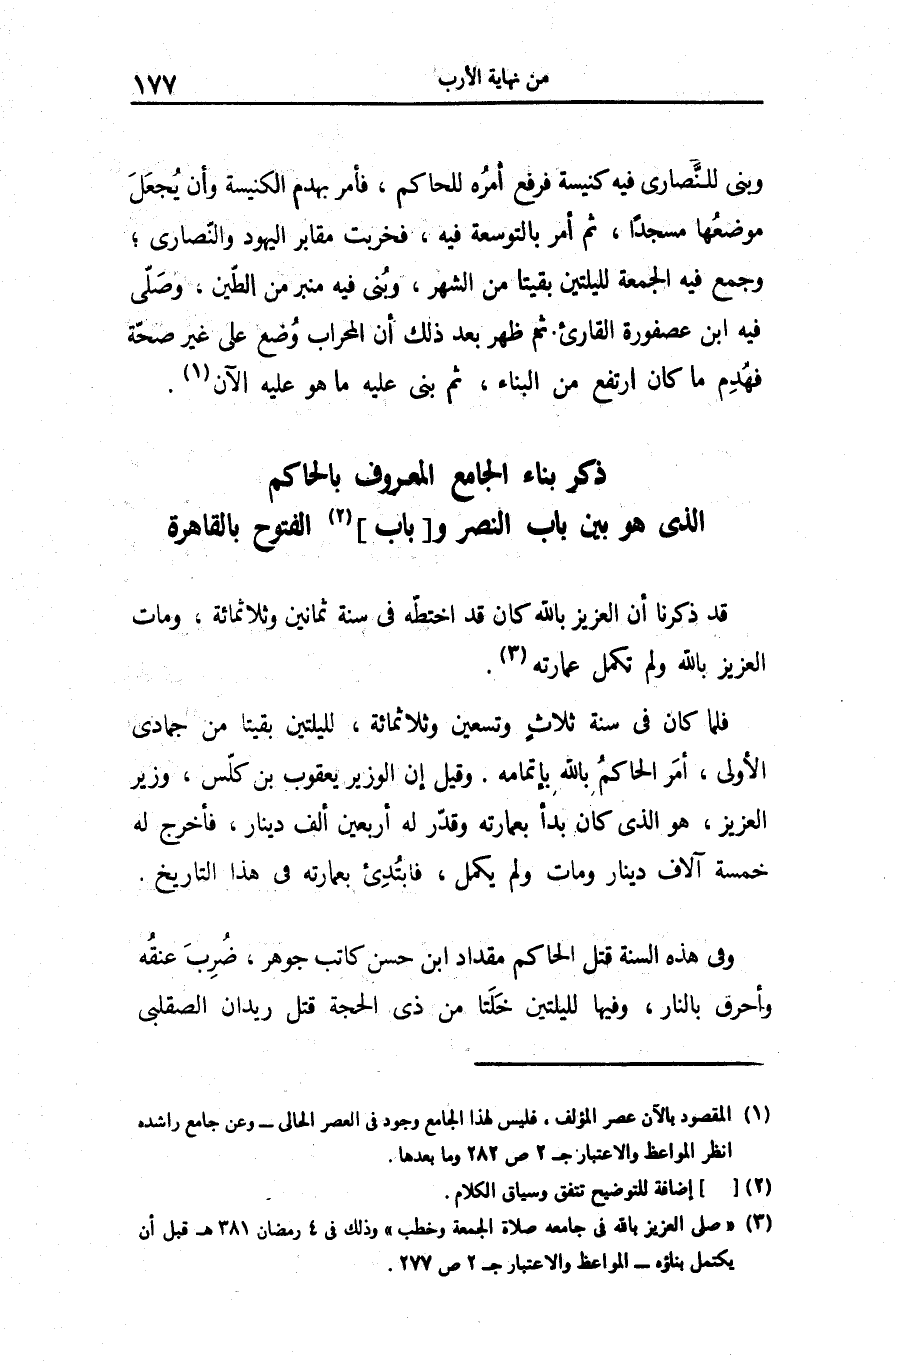 من نهاية الأرب ١٧٧
وبنى للنَّصارى فيه كنيسة فرفع أمرُه للحاكم ، فأمر بهدم الكنيسة وأن يُجعَلَ
موضعُها مسجدًا ، ثم أمر بالتوسعة فيه ، فخربت مقابر اليهود والنّصارى ؛
وجمع فيه الجمعة لليلتين بقيتا من الشهر ، وبُنى فيه منبر من الطّين ، وصَلّى
فيه ابن عصفورة القارئ . ثم ظهر بعد ذلك أن المحراب وُضع على غير صحّة
فهُدِم ما كان ارتفع من البناء ، ثم بنى عليه ما هو عليه الآن (١) .
ذكر بناء الجامع المعروف بالحاكم
الذى هو بين باب النصر و[ باب ] (٢) الفتوح بالقاهرة
قد ذكرنا أن العزيز بالله كان قد اختطّه فى سنة ثمانين وثلاثمائة ، ومات
العزيز بالله ولم تكمل عمارته (٣) .
فلما كان فى سنة ثلاثٍ وتسعين وثلاثمائة ، لليلتين بقيتا من جمادى
الأولى ، أمَر الحاكمُ بالله بإتمامه . وقيل إن الوزير يعقوب بن كلّس ، وزير
العزيز ، هو الذى كان بدأ بعمارته وقدّر له أربعين ألف دينار ، فأخرج له
خمسة آلاف دينار ومات ولم يكمل ، فابتُدِئ بعمارته فى هذا التاريخ .
وفى هذه السنة قتل الحاكم مقداد ابن حسن كاتب جوهر ، ضُرِبَ عنقُه
وأحرق بالنار ، وفيها لليلتين خَلَتا من ذى الحجة قتل ريدان الصقلبى
(١) المقصود بالآن عصر المؤلف ، فليس لهذا الجامع وجود فى العصر الحالى ــ وعن جامع راشده
انظر المواعظ والاعتبار جـ ٢ ص ٢٨٢ وما بعدها .
(٢) [ ] إضافة للتوضيح تتفق وسياق الكلام .
(٣) « صلى العزيز بالله فى جامعه صلاة الجمعة وخطب » وذلك فى ٤ رمضان ٣٨١ هـ قبل أن
يكتمل بناؤه ــ المواعظ والاعتبار جـ ٢ ص ٢٧٧ .